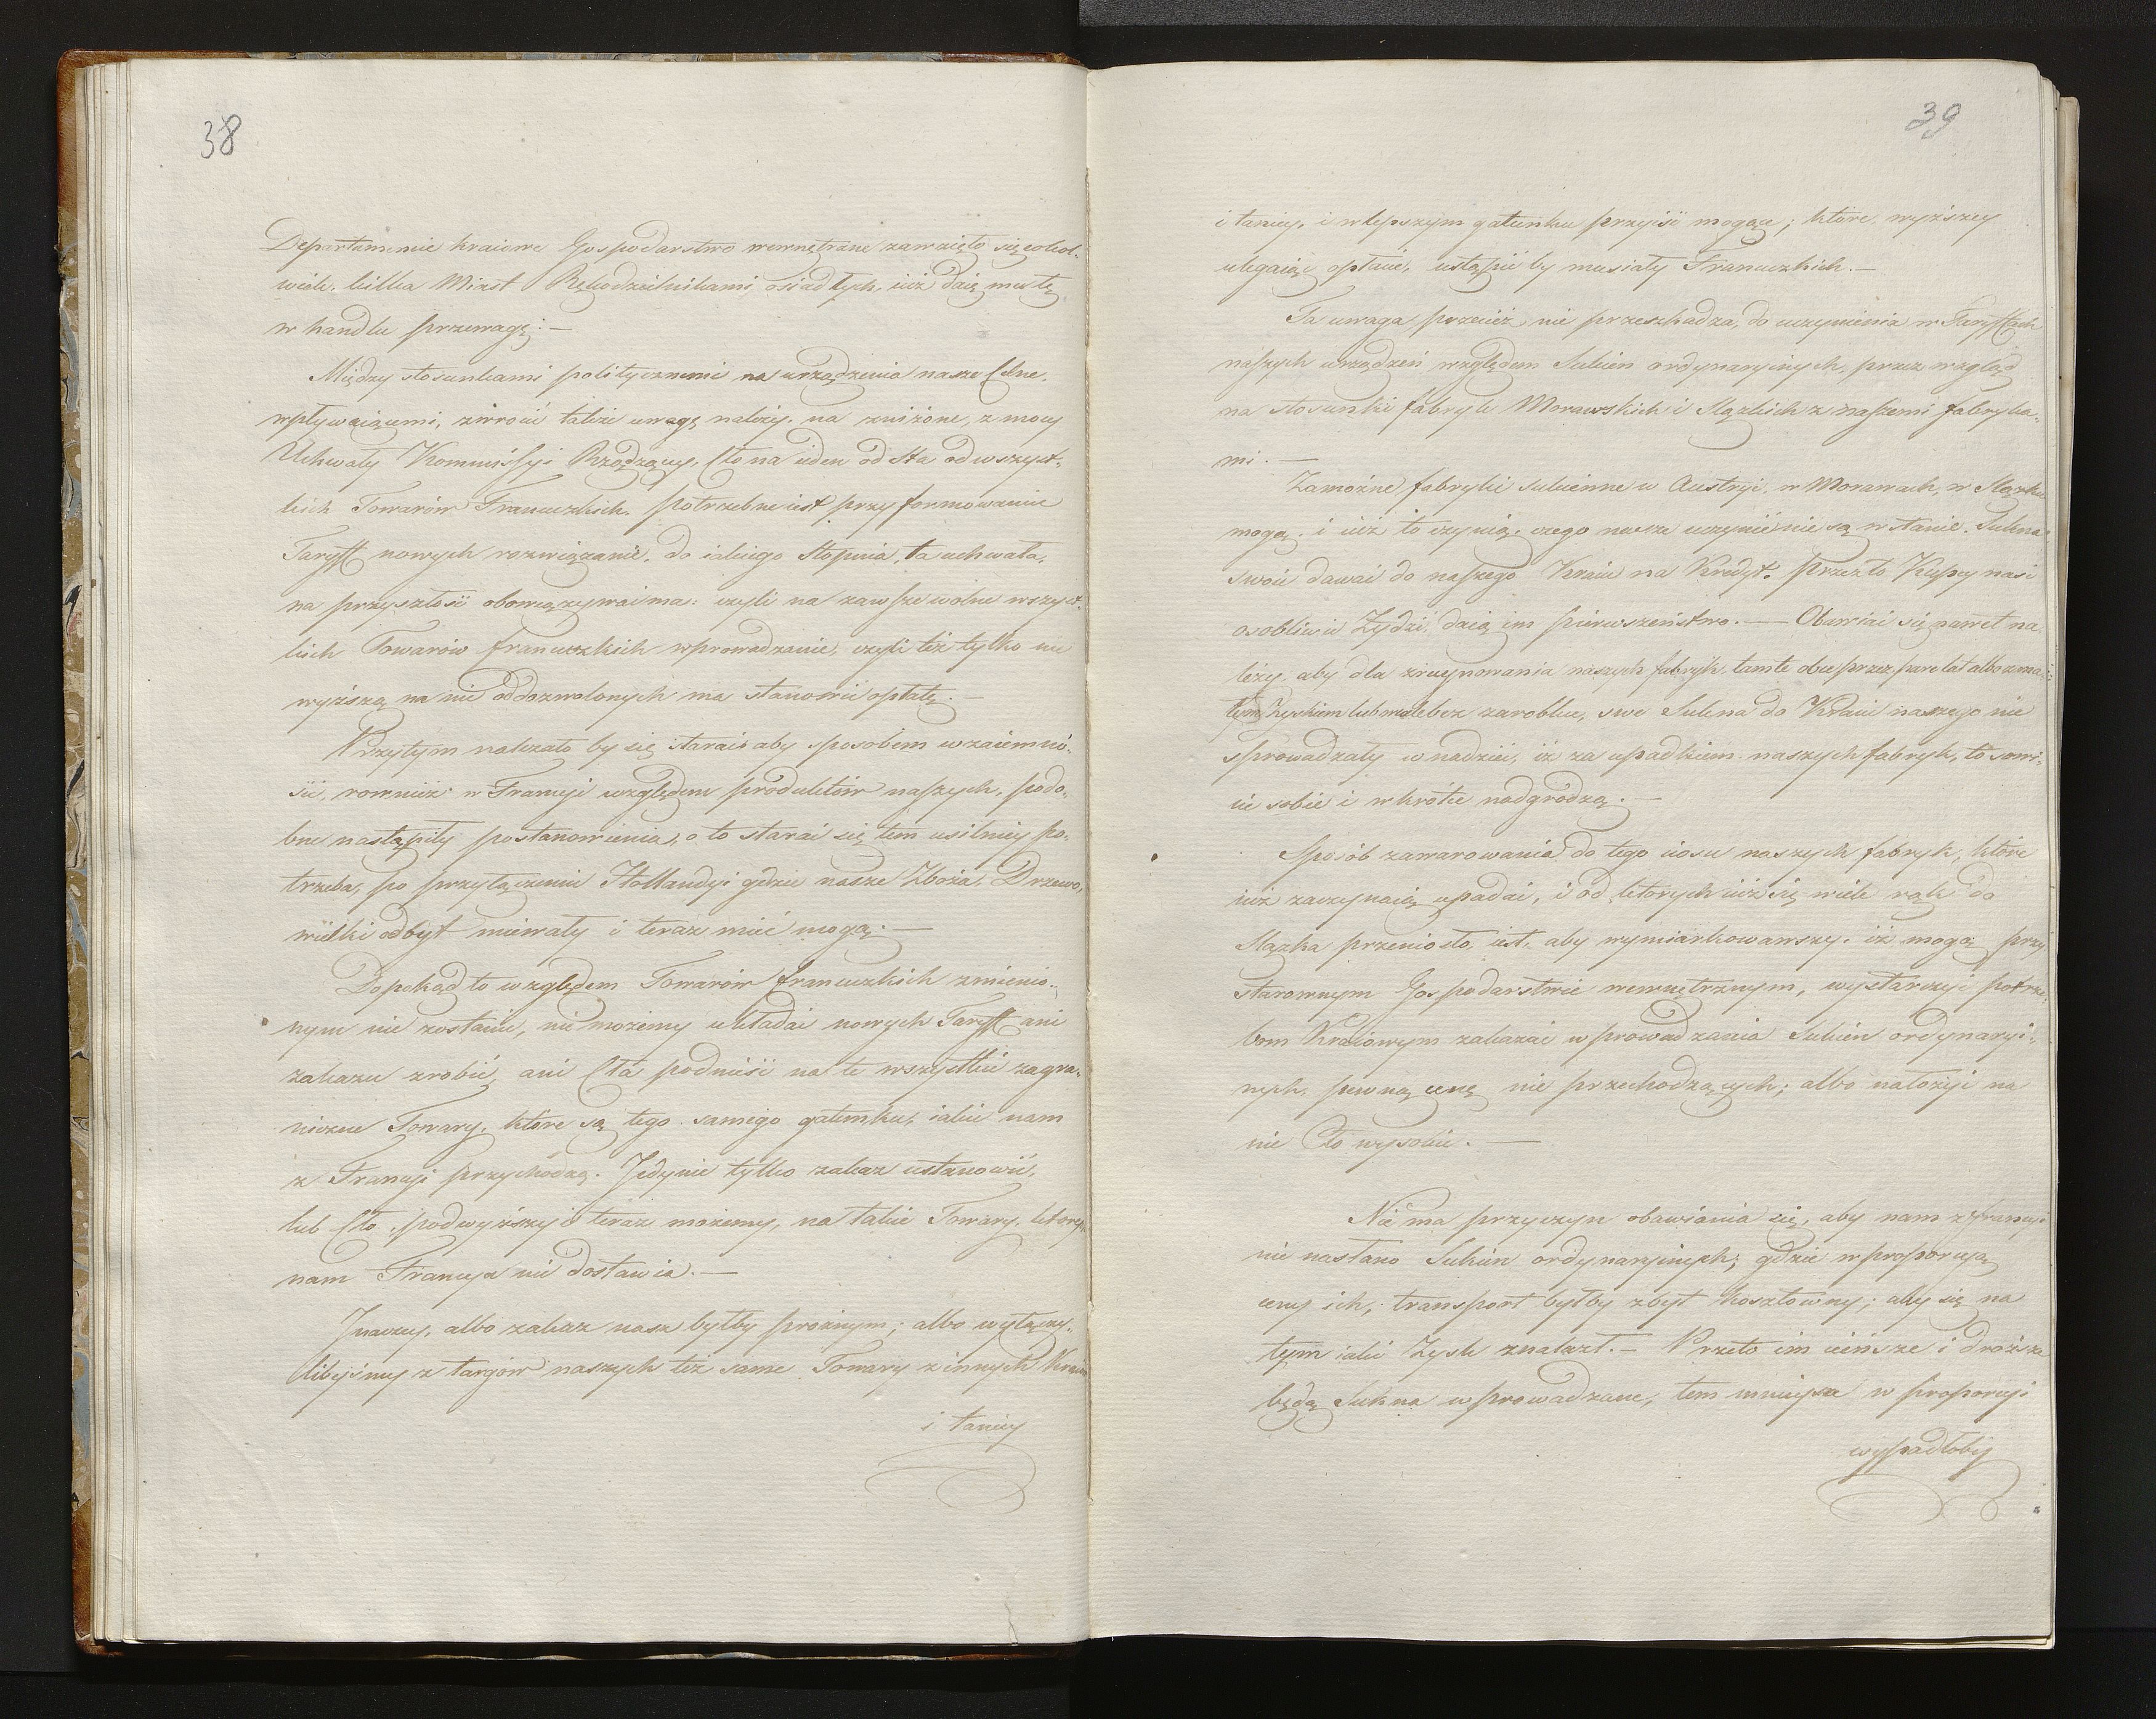 38
Departamencie kraiowe Gospodarstwo wewnętrzne zawzięto się cokol-
wiek. kilka Miast Rękodzielnikami osiadłych, iuż daią mu tę
w handlu przewagę: —
Między stosunkami politycznemi na urządzenia nasze Celne,
wpływaiącemi, zwrócić także uwagę należy. na zniżone, z mocy
Uchwały Kommissyi Rządzącey, Cło na ieden od Sta od wszyst-
kich Towarów Francuzkich. potrzebne iest przy formowaniu
Taryff nowych rozwiązanie, do iakiego stopnia, ta uchwała,
na przyszłość obowiązywać ma: czyli na zawsze wolne wszyst-
kich Towarów francuzkich wprowadzanie, czyli też tylko nie
wyższą na nie od dozwolonych ma stanowić opłatę. —
Przytym należało by się starać aby sposobem wzaiemno-
ści, rownież w Francyi względem produktów naszych, podo-
bne nastąpiły postanowienia, o to starać się tem usilniey po-
trzeba, po przyłączeniu Hollandyi gdzie nasze Zboża, Drzewo,
wielki odbyt miewały i teraz mieć mogą. —
Dopokąd to względem Towarów francuzkich zmienio-
nym nie zostanie, nie możemy układać nowych Taryff ani
zakazu zrobić, ani Cła podnieść na te wszystkie zagra-
niczne Towary, które są tego samego gatunku, iakie nam
z Francyi przychodzą. Jedynie tylko zakaz ustanowić,
lub Cło podwyższyć teraz możemy, na takie Towary, których
nam Francya nie dostawia. —
Jnaczey, albo zakaz nasz byłby próżnym; albo wyłączy-
libyśmy z targów naszych też same Towary z innych Kraiów
i taniey
39
i taniey, i w lepszym gatunku przyiść mogące; które wyższey
ulegaiąc opłacie, ustąpić by musiały Francuzkich. —
Ta uwaga przecież nie przeszkadza, do uczynienia w Taryffach
naszych urządzeń względem Sukien ordynaryinych, przez wzgląd
na stosunki fabryk Morawskich i Slązkich z naszemi fabryka-
mi. —
Zamożne fabryki sukienne w Austryi, w Morawach, w Slązku
mogą. i iuż to czynią, czego nasze uczynić nie są w stanie. Sukna
swoie dawać do naszego Kraiu na Kredyt. Przezto Kupcy nasi
osobliwie Żydzi, daią im pierwszeństwo. — Obawiać się nawet na-
leży, aby dla zruynowania naszych fabryk, tamte obce przez pare lat albo z ma-
łym Zyskiem lub wcale bez zarobku, swe Sukna do Kraiu naszego nie
sprowadzały w nadziei, iż za upadkiem naszych fabryk, to sowi-
cie sobie i wkrótce nadgrodzą. —
Sposób zawarowania do tego ciosu naszych fabryk, które
iuż zaczynaią upadać, i od ktorych iuż się wiele rąk do
Slązka przeniosło, iest, aby wymiarkowawszy. iż mogą przy
starownym Gospodarstwie wewnętrznym, wystarczyć potrze-
bom Kraiowym zakazać wprowadzania Sukien ordynaryi-
nych, pewną cenę nie przechodzących; albo nałożyć na
nie Cło wysokie. —
Nie ma przyczyn obawiania się, aby nam z francyi
nie nasłano Sukien ordynaryinych; gdzie w proporcyą
ceny ich, transport byłby zbyt kosztowny; aby się na
tym iaki Zysk znalazł. — Przeto im cieńsze i droższe
będą Sukna wprowadzane, tem mnieysza w proporcyi
wypadłoby